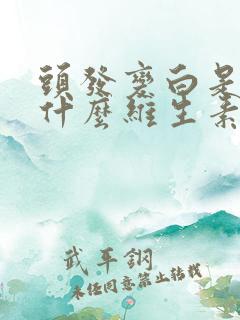 頭發變白是
什麼維生素
武平鋼
未經同意禁止轉載